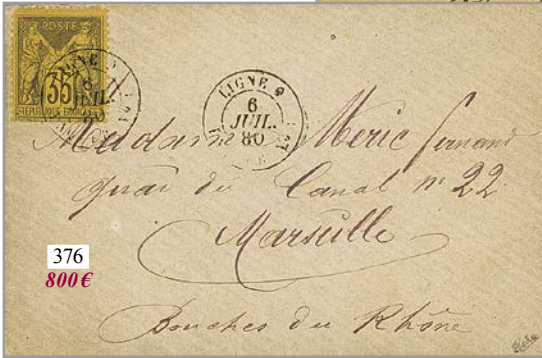 POSTE
35
REPUBLIQUE FRANÇAISE
LIGNE
6
JUIL.
80
Madame Meric fernand
quai du Canal nº 22
Marseille
Bouches du Rhône
376
800€